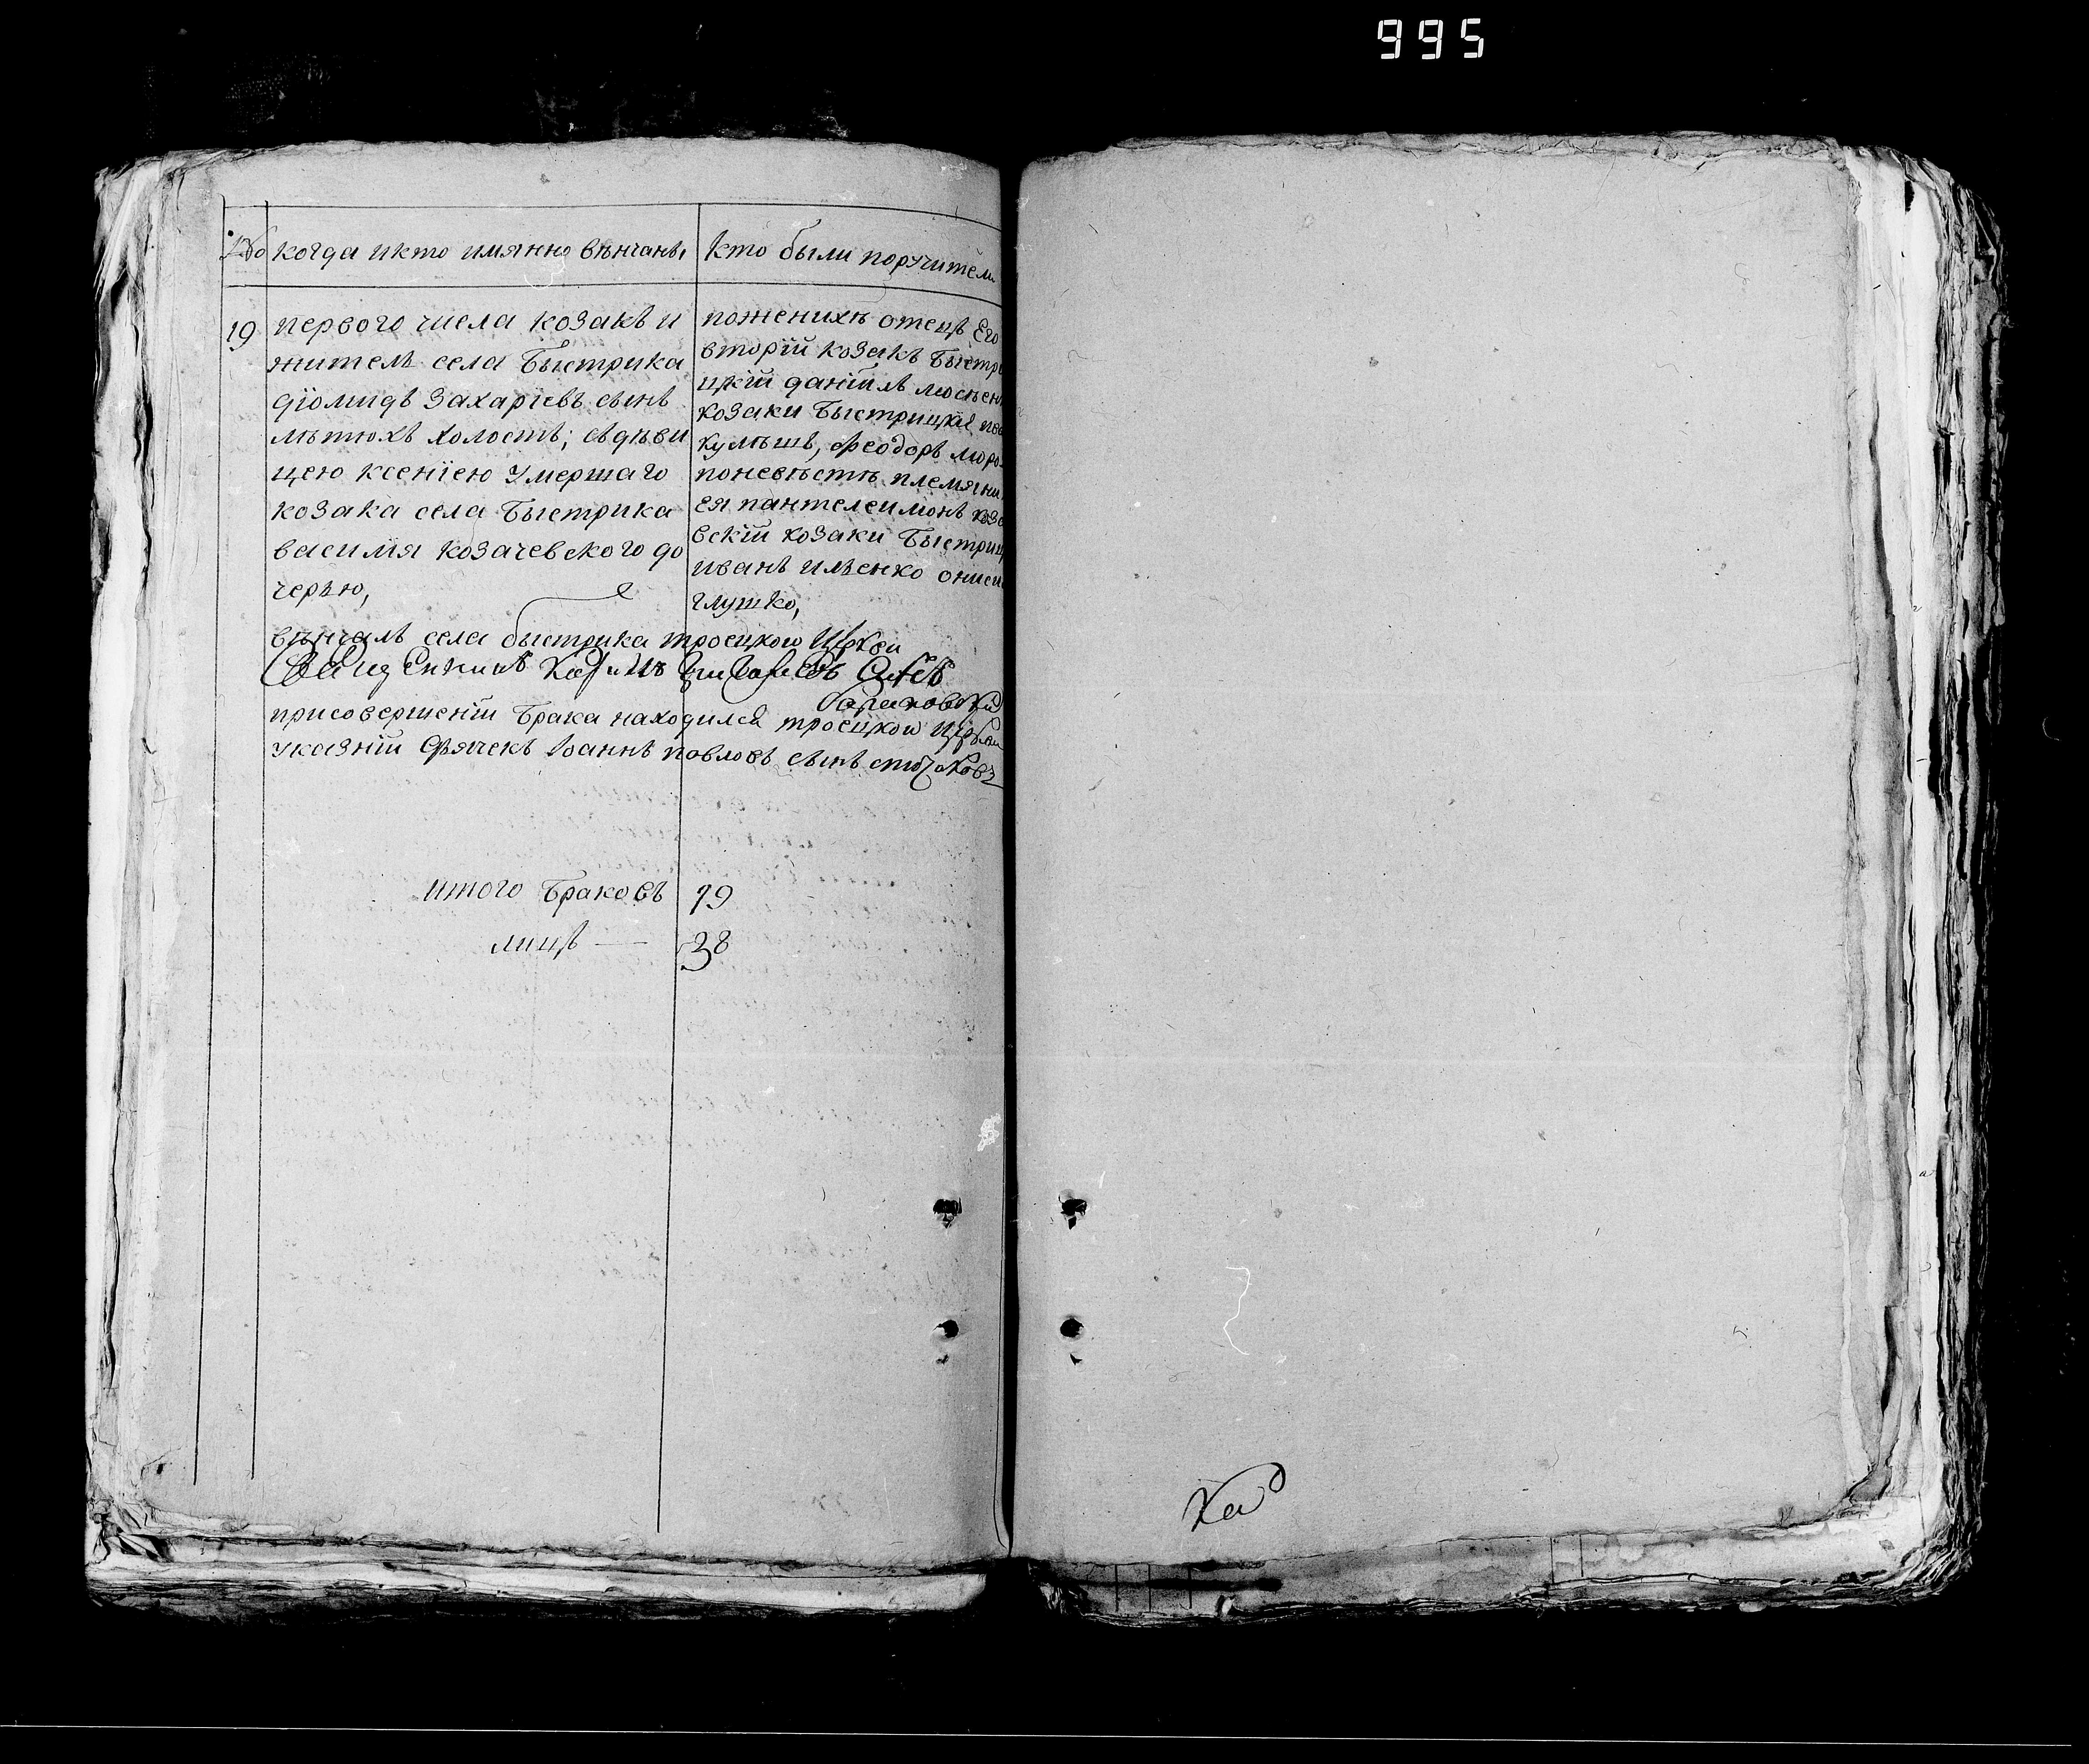 995
№ когда икто имянно вѣнчаны
кто были поручители
19
первого числа козакъ и
житель села Быстрика
діомидъ Захаріевъ сынъ
лѣтюхъ холостъ; съдѣви
цею ксеніею умершаго
козака села Быстрика
василія козачевского до
черью,
поженихѣ отецъ Его
вторій козакъ Быстри
цкій даніилъ
козаки Быстрицкіе
кулѣшъ, Феодоръ моро
поневѣстѣ племянни
ея пантелеимонъ коза
вскій козаки Быстриц
иванъ ильенко ониси
глушко,
вѣнчалъ села быстрика троецкою Церкви
Священникъ Григориевъ Синъ
присовершеніи Брака находился троецкои Церкви
указній Дячекъ Іоаннъ павловъ сынъ
итого Браковъ 19
лицъ — 38